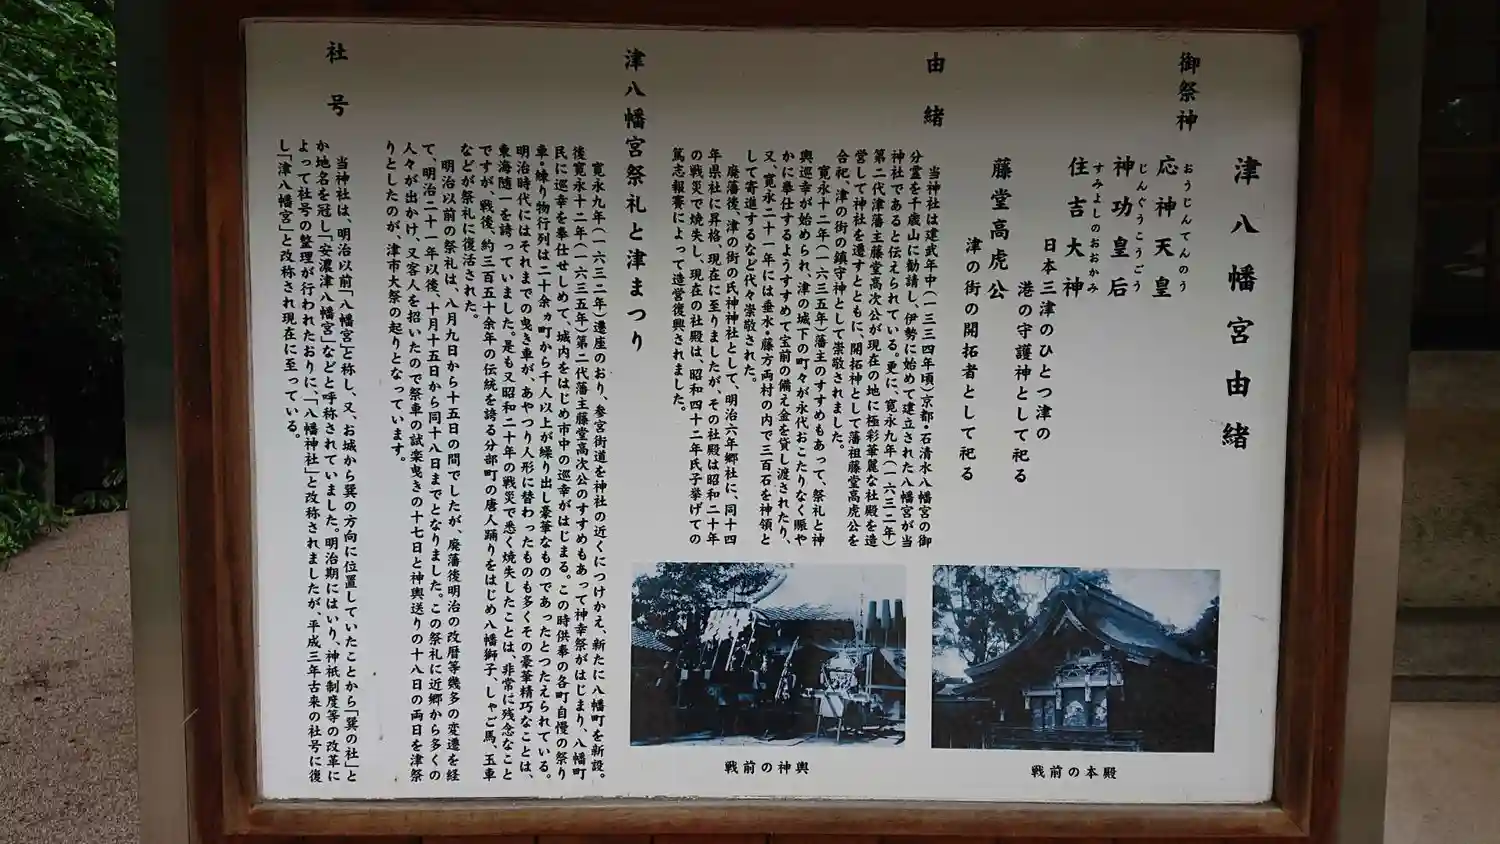 津八幡宮由緒
御祭神
おうじんてんのう
応神天皇
じんぐうこうごう
神功皇后
すみよしのおおかみ
住吉大神
日本三津のひとつ津の
港の守護神として祀る
藤堂高虎公
津の街の開拓者として祀る
由緒
当神社は建武年中(一三三四年頃)京都・石清水八幡宮の御
分霊を千歳山に勧請し、伊勢に始めて建立された八幡宮が当
神社であると伝えられている。更に、寛永九年(一六三二年)
第二代津藩主藤堂高次公が現在の地に極彩華麗な社殿を造
営して神社を遷すとともに、開拓神として藩祖藤堂高虎公を
合祀、津の街の鎮守神として崇敬されました。
寛永十二年(一六三五年)藩主のすすめもあって、祭礼と神
輿巡幸が始められ、津の城下の町々が永代おこたりなく賑や
かに奉仕するようすすめて宝前の備え金を貸し渡されたり、
又、寛永二十一年には垂水・藤方両村の内で三百石を神領と
して寄進するなど代々崇敬された。
廃藩後、津の街の氏神神社として、明治六年郷社に、同十四
年県社に昇格、現在に至りましたが、その社殿は昭和二十年
の戦災で焼失し、現在の社殿は、昭和四十二年氏子挙げての
篤志報賽によって造営復興されました。
津八幡宮祭礼と津まつり
寛永九年(一六三二年)遷座のおり、参宮街道を神社の近くにつけかえ、新たに八幡町を新設。
後寛永十二年(一六三五年)第二代藩主藤堂高次公のすすめもあって神幸祭がはじまり、八幡町
民に巡幸を奉仕せしめて、城内をはじめ市中の巡幸がはじまる。この時供奉の各町自慢の祭り
車・練り物行列は二十余ヵ町から千人以上が繰り出し豪華なものであったとつたえられている。
明治時代にはそれまでの曳き車が、あやつり人形に替わったものも多くその豪華精巧なことは、
東海随一を誇っていました。是も又昭和二十年の戦災で悉く焼失したことは、非常に残念なこと
ですが、戦後、約三百五十余年の伝統を誇る分部町の唐人踊りをはじめ八幡獅子、しゃご馬、五車
などが祭礼に復活された。
明治以前の祭礼は、八月九日から十五日の間でしたが、廃藩後明治の改暦等幾多の変遷を経
て、明治二十一年以後、十月十五日から同十八日までとなりました。この祭礼に近郷から多くの
人々が出かけ、又客人を招いたので祭車の試楽曳きの十七日と神輿送りの十八日の両日を津祭
りとしたのが、津市大祭の起りとなっています。
社号
当神社は、明治以前「八幡宮」と称し、又、お城から巽の方向に位置していたことから「巽の社」と
か地名を冠し「安濃津八幡宮」などと呼称されていました。明治期にはいり、神祇制度等の改革に
よって社号の整理が行われたおりに、「八幡神社」と改称されましたが、平成三年古来の社号に復
し「津八幡宮」と改称され現在に至っている。
戦前の神輿
戦前の本殿